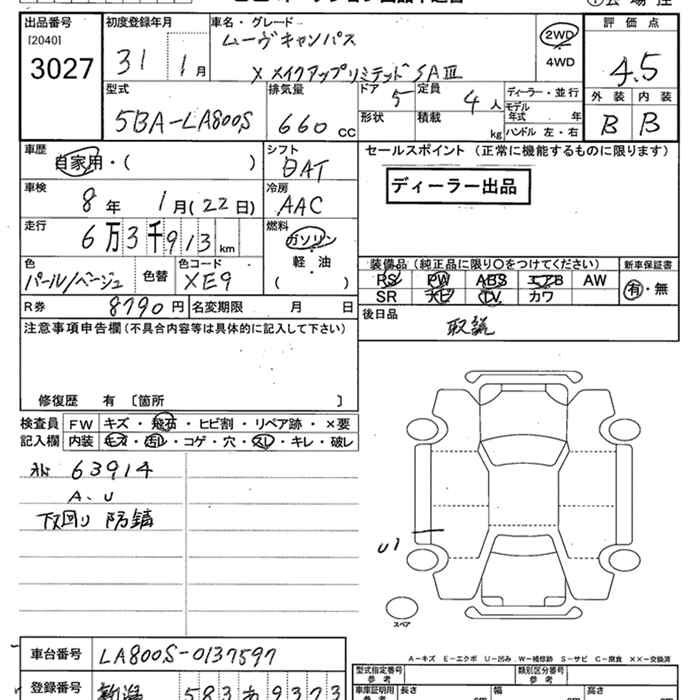 出品番号
[2040]
3027
初度登録年月
31 1月
車名・グレード
ムーヴキャンバス
X メイクアップリミテッド SAⅢ
2WD
4WD
評価点
4.5
外装 内装
B B
型式
5BA-LA800S
排気量
660 CC
ドア
5
定員
4人
形状
積載
kg
ディーラー・並行
モデル年式 年
ハンドル 左・右
車歴
自家用・( )
シフト
DAT
車検
8年 1月(22日)
冷房
AAC
走行
6万3千913km
燃料
ガソリン
軽・油
( )
色
パール/ベージュ
色替
色コード
XE9
R券 8790円
名変期限 月 日
セールスポイント (正常に機能するものに限ります)
ディーラー出品
装備品 (純正品に限り〇をつけてください)
PS PW ABS エアB AW
SR ナビ TV カワ
新車保証書
有・無
後日品
取説
注意事項申告欄(不具合内容等は具体的に記入して下さい)
修復歴 有 [箇所 ]
検査員記入欄
FW キズ・飛石・ヒビ割・リペア跡・×要
内装 キズ・汚レ・コゲ・穴・スレ・キレ・破レ
63914
A、U
下回り 防錆
U1
スペア
A-キズ E-エクボ U-凹み W-補修跡 S-サビ C-腐食 ××-交換済
車台番号 LA800S-0137597
登録番号 新潟 583 あ 9373
型式指定番号
参考
類別区分番号
参考
車庫証明用
参考
長さ
幅
高さ